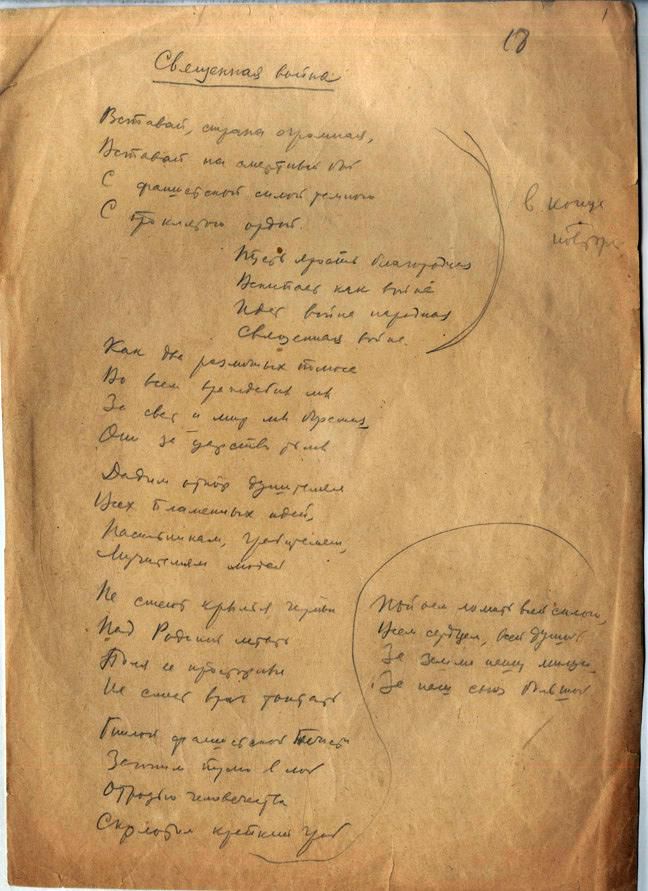 18
Священная война
Вставай, страна огромная,
Вставай на смертный бой
С фашистской силой темною
С проклятою ордой.
в конце
повтор
Пусть ярость благородная
Вскипает как волна
Идет война народная
Священная война.
Как два различных полюса
Во всем враждебны мы
За свет и мир мы боремся
Они за царство тьмы
Дадим отпор душителям
Всех пламенных идей,
Насильникам, грабителям,
Мучителям людей
Не смеют крылья черные
Над Родиной летать
Поля ее просторные
Не смеет враг топтать
Пойдем ломить всей силой,
Всем сердцем, всей душой
За землю нашу милую
За наш союз большой
Гнилой фашистской нечисти
Загоним пулю в лоб
Отродью человечества
Сколотим крепкий гроб